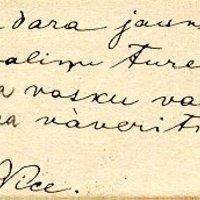 dara jaun
alimu ture
a vasku va
a vāveriti
Vice.